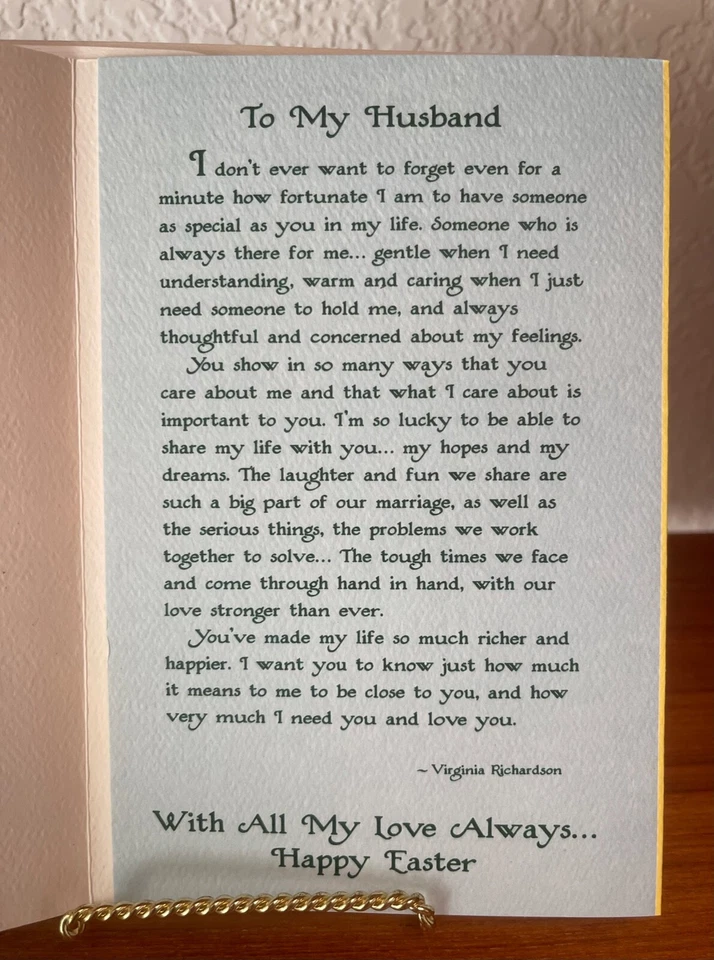 To My Husband
I don't ever want to forget even for a
minute how fortunate I am to have someone
as special as you in my life. Someone who is
always there for me... gentle when I need
understanding, warm and caring when I just
need someone to hold me, and always
thoughtful and concerned about my feelings.
You show in so many ways that you
care about me and that what I care about is
important to you. I'm so lucky to be able to
share my life with you... my hopes and my
dreams. The laughter and fun we share are
such a big part of our marriage, as well as
the serious things, the problems we work
together to solve... The tough times we face
and come through hand in hand, with our
love stronger than ever.
You've made my life so much richer and
happier. I want you to know just how much
it means to me to be close to you, and how
very much I need you and love you.
~ Virginia Richardson
With All My Love Always...
Happy Easter